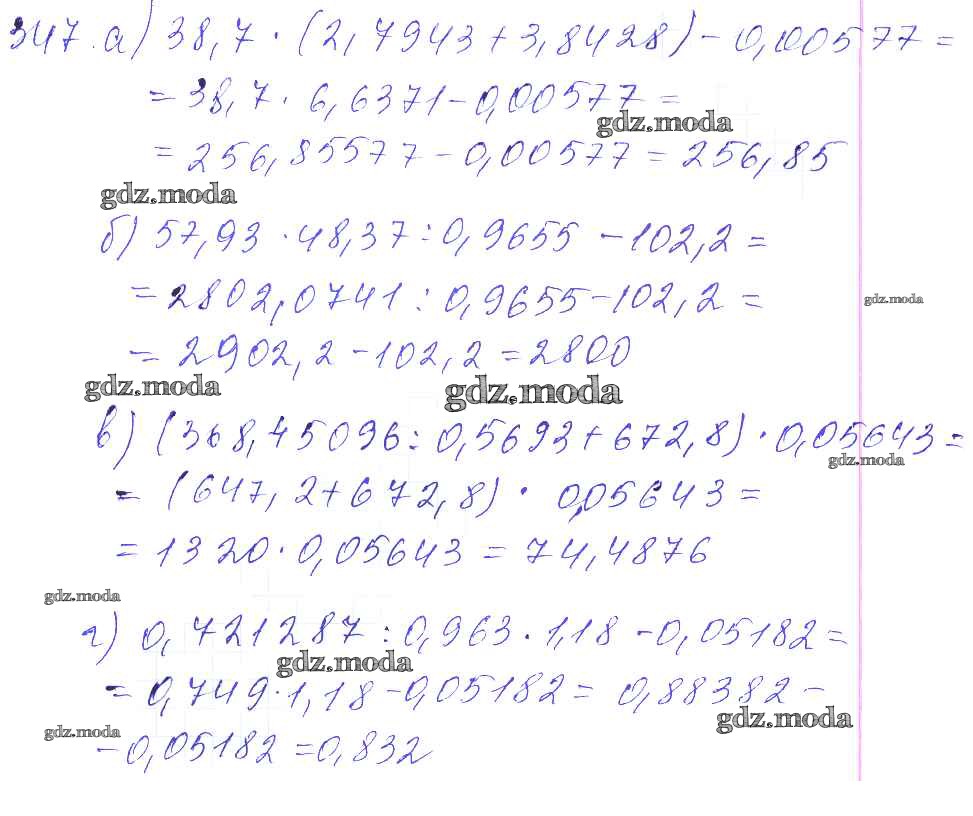 347. а) 38,7 · (2,7943 + 3,8428) - 0,00577 =
= 38,7 · 6,6371 - 0,00577 =
gdz.moda
= 256,85577 - 0,00577 = 256,85
gdz.moda
б) 57,93 · 48,37 : 0,9655 - 102,2 =
= 2802,0741 : 0,9655 - 102,2 =
gdz.moda
= 2902,2 - 102,2 = 2800
gdz.moda gdz.moda
в) (368,45096 : 0,5693 + 672,8) · 0,05643 =
gdz.moda
= (647,2 + 672,8) · 0,05643 =
= 1320 · 0,05643 = 74,4876
gdz.moda
г) 0,721287 : 0,963 · 1,18 - 0,05182 =
gdz.moda
= 0,749 · 1,18 - 0,05182 = 0,88382 -
gdz.moda
gdz.moda
- 0,05182 = 0,832